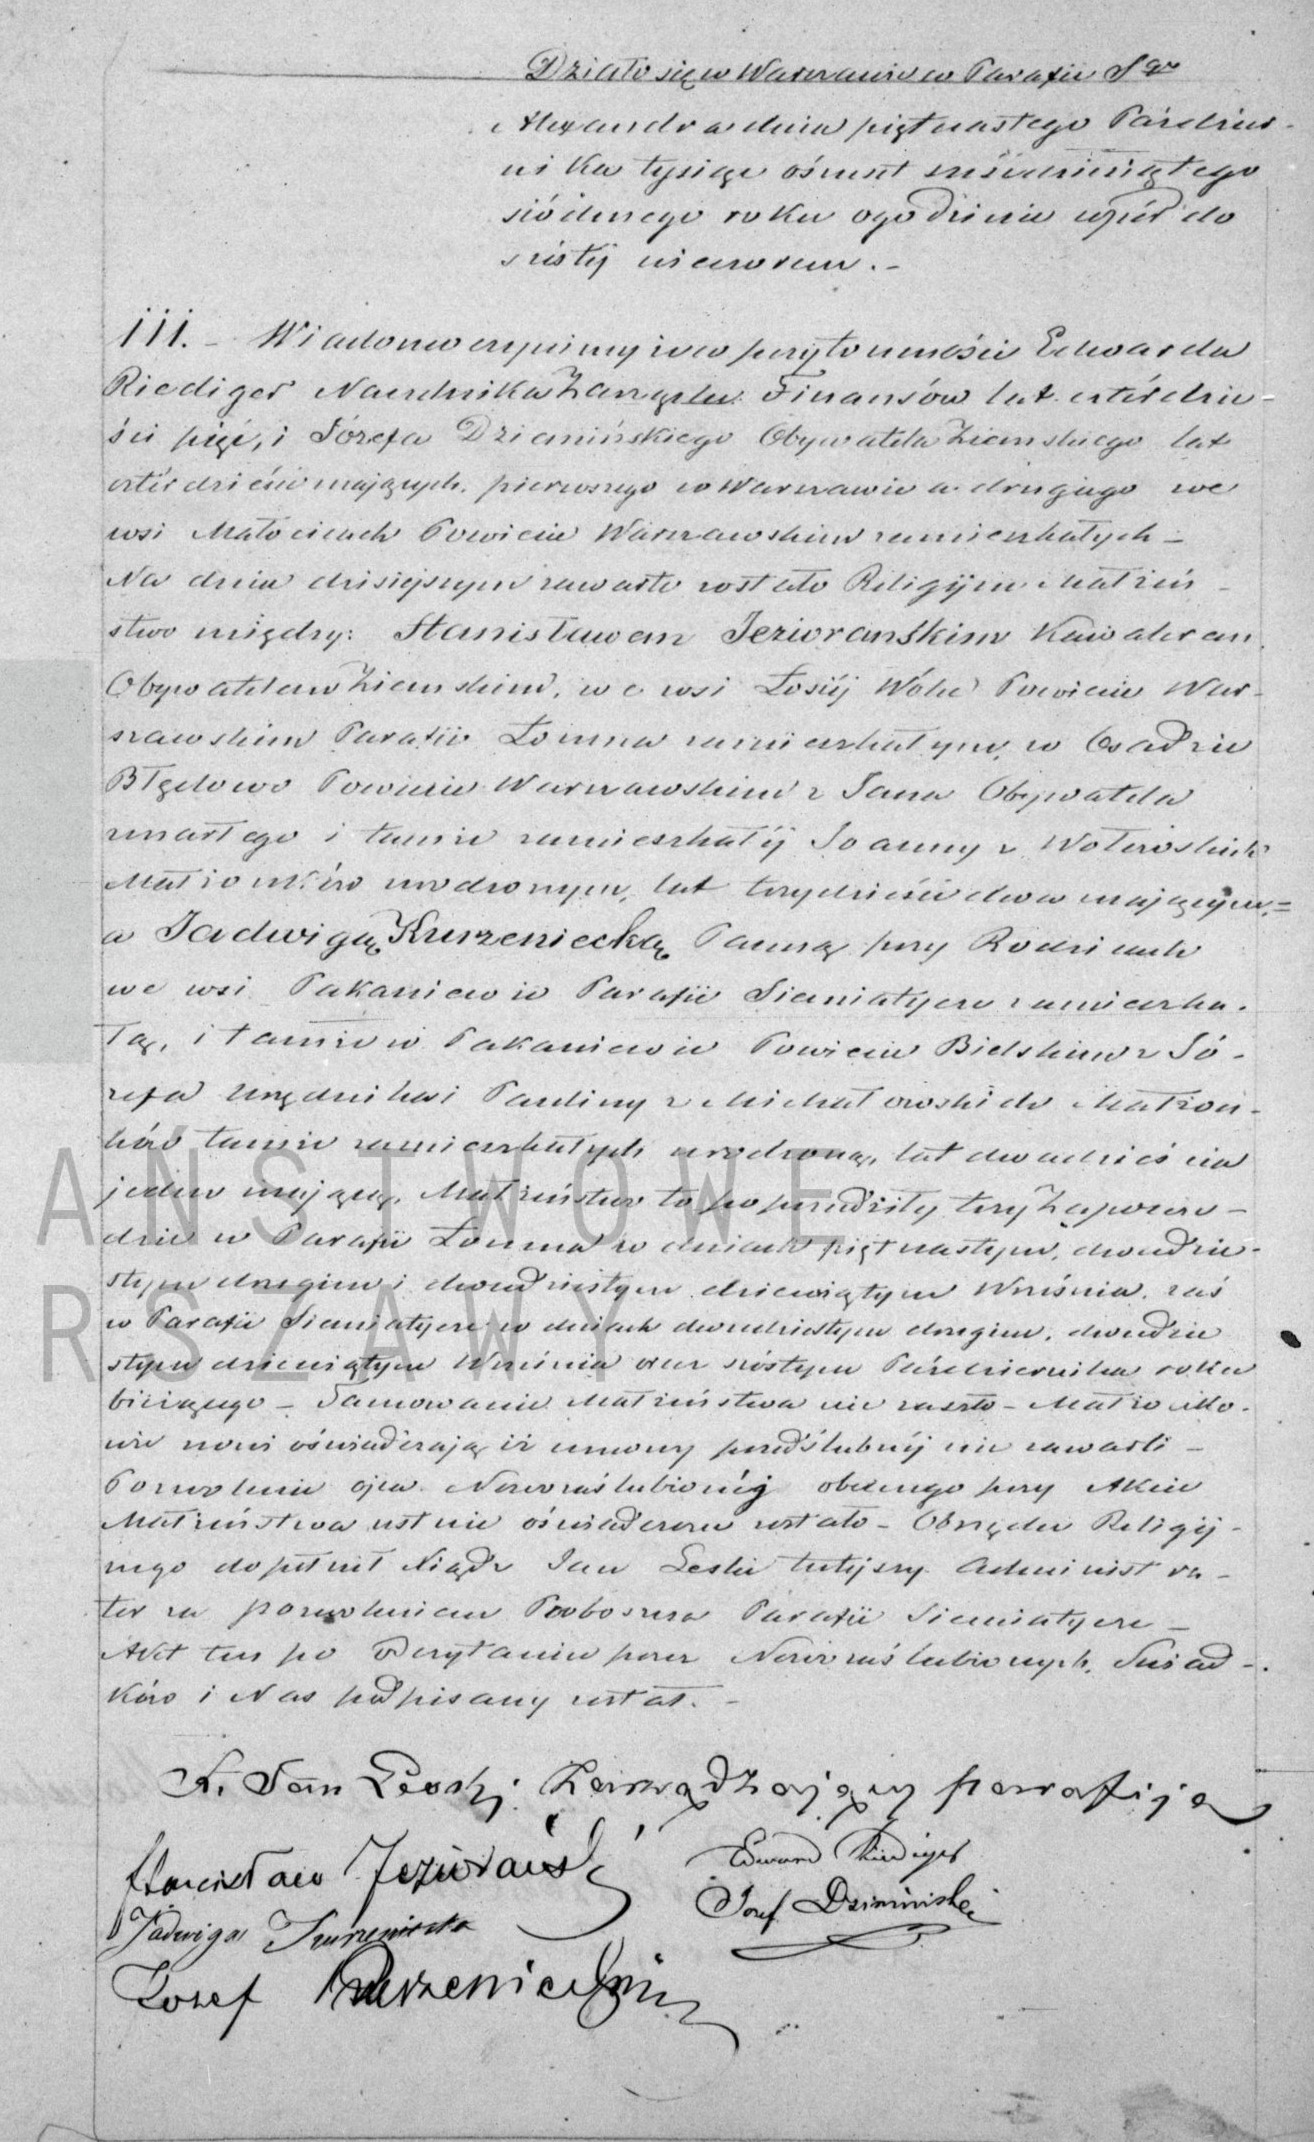 Działo się w Warszawie w Parafii Sgo
Alexandra dnia piętnastego Paździer-
nika tysiąc ośmset sześćdziesiątego
siódmego roku o godzinie wpół do
szóstej wieczorem.-
111.- Wiadomo czynimy iż w przytomności Edwarda
Riediger Naczelnika Zarządu Finansów lat czterdzie-
ści pięć, i Józefa Dziemińskiego Obywatela Ziemskiego lat
czterdzieści mających, pierwszego w Warszawie a drugiego we
wsi Małocicach Powiecie Warszawskim zamieszkałych -
Na dniu dzisiejszym zawarte zostało Religijne Małżeń-
stwo między: Stanisławem Jeziorańskim Kawalerem
Obywatelem Ziemskim, we wsi Łosiéj Wólce Powiecie War-
szawskim Parafii Łomna zamieszkałym, w Osadzie
Błędowo Powiecie Warszawskim z Jana Obywatela
zmarłego i tamże zamieszkałéj Joanny z
Małżonków urodzonym, lat trzydzieści dwa mającym,=
a Jadwigą Kurzeniecką Panną przy Rodzicach
we wsi Pakaniewie Parafii Siemiatycze zamieszka-
łą, i tamże w Pakaniewie Powiecie Bielskim z Jó-
zefa Urzędnika i Pauliny z Michałowskich Małżon-
ków tamże zamieszkałych urodzoną, lat dwadzieścia
jeden mającą. Małżeństwo to poprzedziły trzy Zapowie-
dzie w Parafii Łomna w dniach piętnastym, dwudzie-
stym drugim i dwudziestym dziewiątym Września, zaś
w Parafii Siemiatycze w dniach dwudziestym drugim, dwudzie
stym dziewiątym Września oraz szóstym Października roku
bieżącego - Tamowanie Małżeństwa nie zaszło - Małżonko-
wie nowi oświadczają iż umowy przedślubnéj nie zawarli -
Pozwolenie ojca Nowozaślubionéj obecnego przy Akcie
Małżeństwa ustnie oświadczone zostało - Obrzędu Religij-
nego dopełnił Xiądz Jan Leski tutejszy Administra-
tor za pozwoleniem Proboszcza Parafii Siemiatycze -
Akt ten po odczytaniu przez Nowozaślubionych, Świad-
ków i Nas podpisany został. -
X. Jan Leski Zarządzający parafiją
Stanisław Jeziorański
Edward Riediger
Jadwiga Kurzeniecka
Józef Dziemiński
Józef Kurzeniecki
ANSTWOWE
RSZAWY